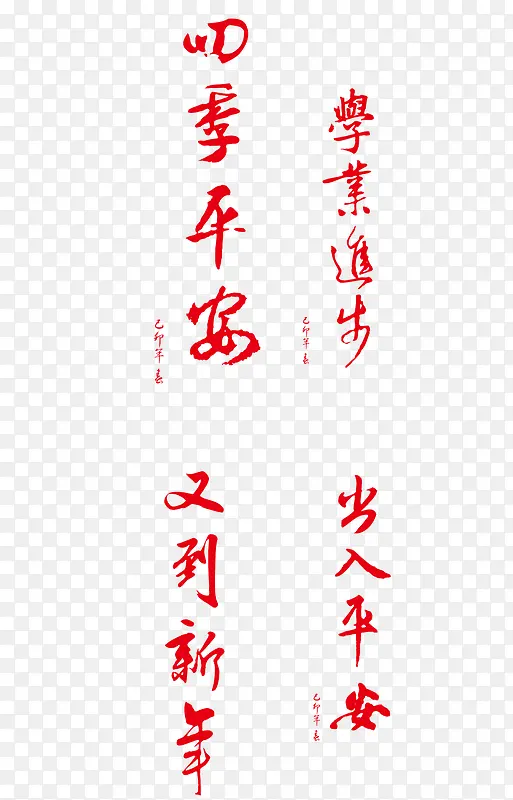 四季平安
己卯年春
學業進步
己卯年春
又到新年
出入平安
己卯年春